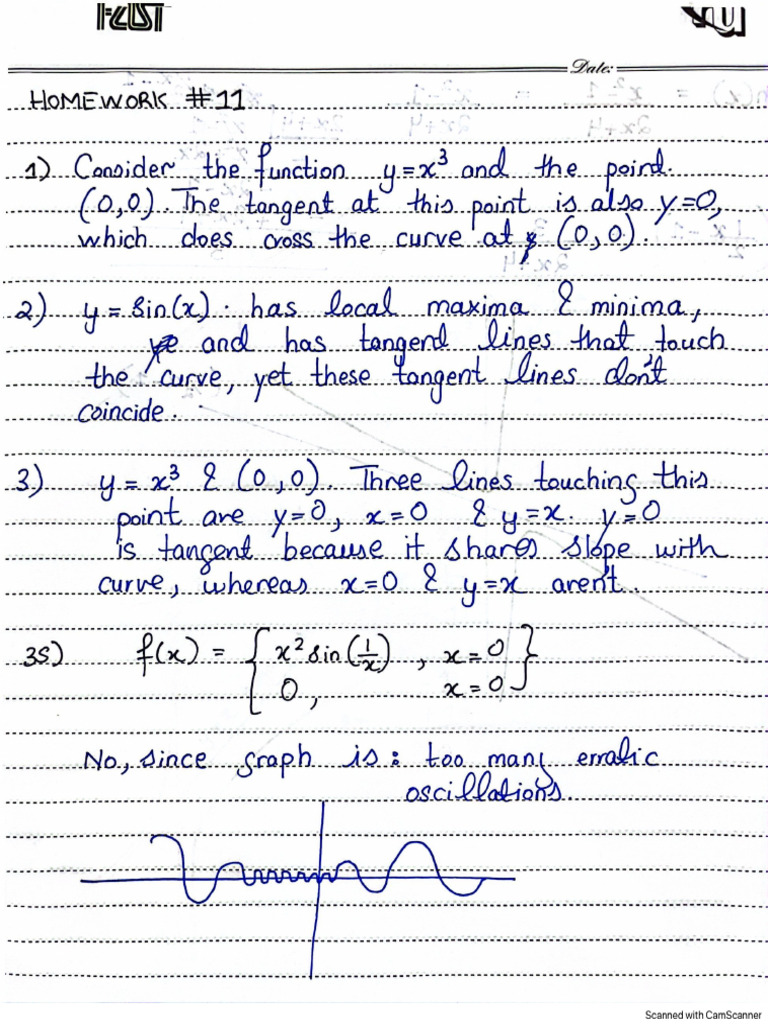 Date:
HOMEWORK #11
1) Consider the function y=x³ and the point
(0,0). The tangent at this point is also y=0,
which does cross the curve at (0,0).
2) y=sin(x). has local maxima & minima,
and has tangend lines that touch
the curve, yet these tangent lines don't
coincide.
3) y=x³ & (0,0). Three lines touching this
point are y=0, x=0 & y=x. y=0
is tangent because it shares slope with
curve, whereas x=0 & y=x aren't.
35) f(x) = { x² sin(1/x) , x=0 }
0, x=0
No, since graph is: too many erratic
oscillations.
Scanned with CamScanner